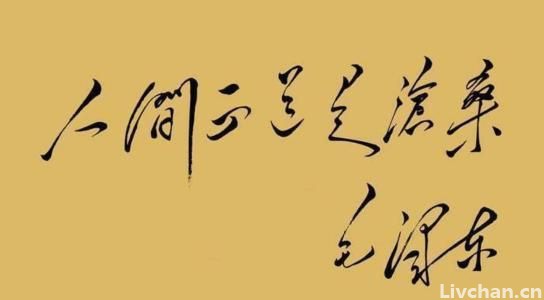 人間正道是滄桑
毛泽东
Livchan.cn